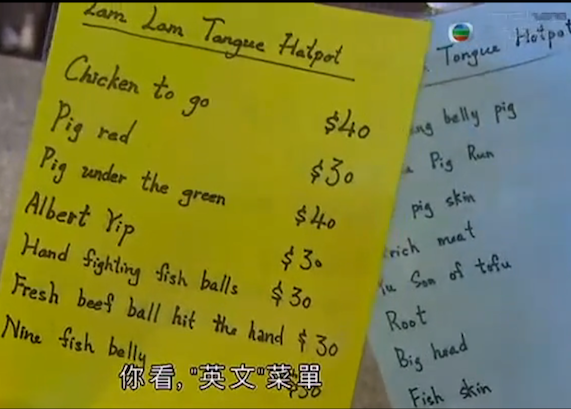 Lam Lam Tangue Hatpot
Chicken to go $40
Pig red $30
Pig under the green $40
Albert Yip $30
Hand fighting fish balls $30
Fresh beef ball hit the hand $30
Nine fish belly $30
Tongue Hotpot
belly pig
Pig Run
pig skin
rich meat
Son of tofu
Root
Big head
Fish skin
你看,"英文"菜單